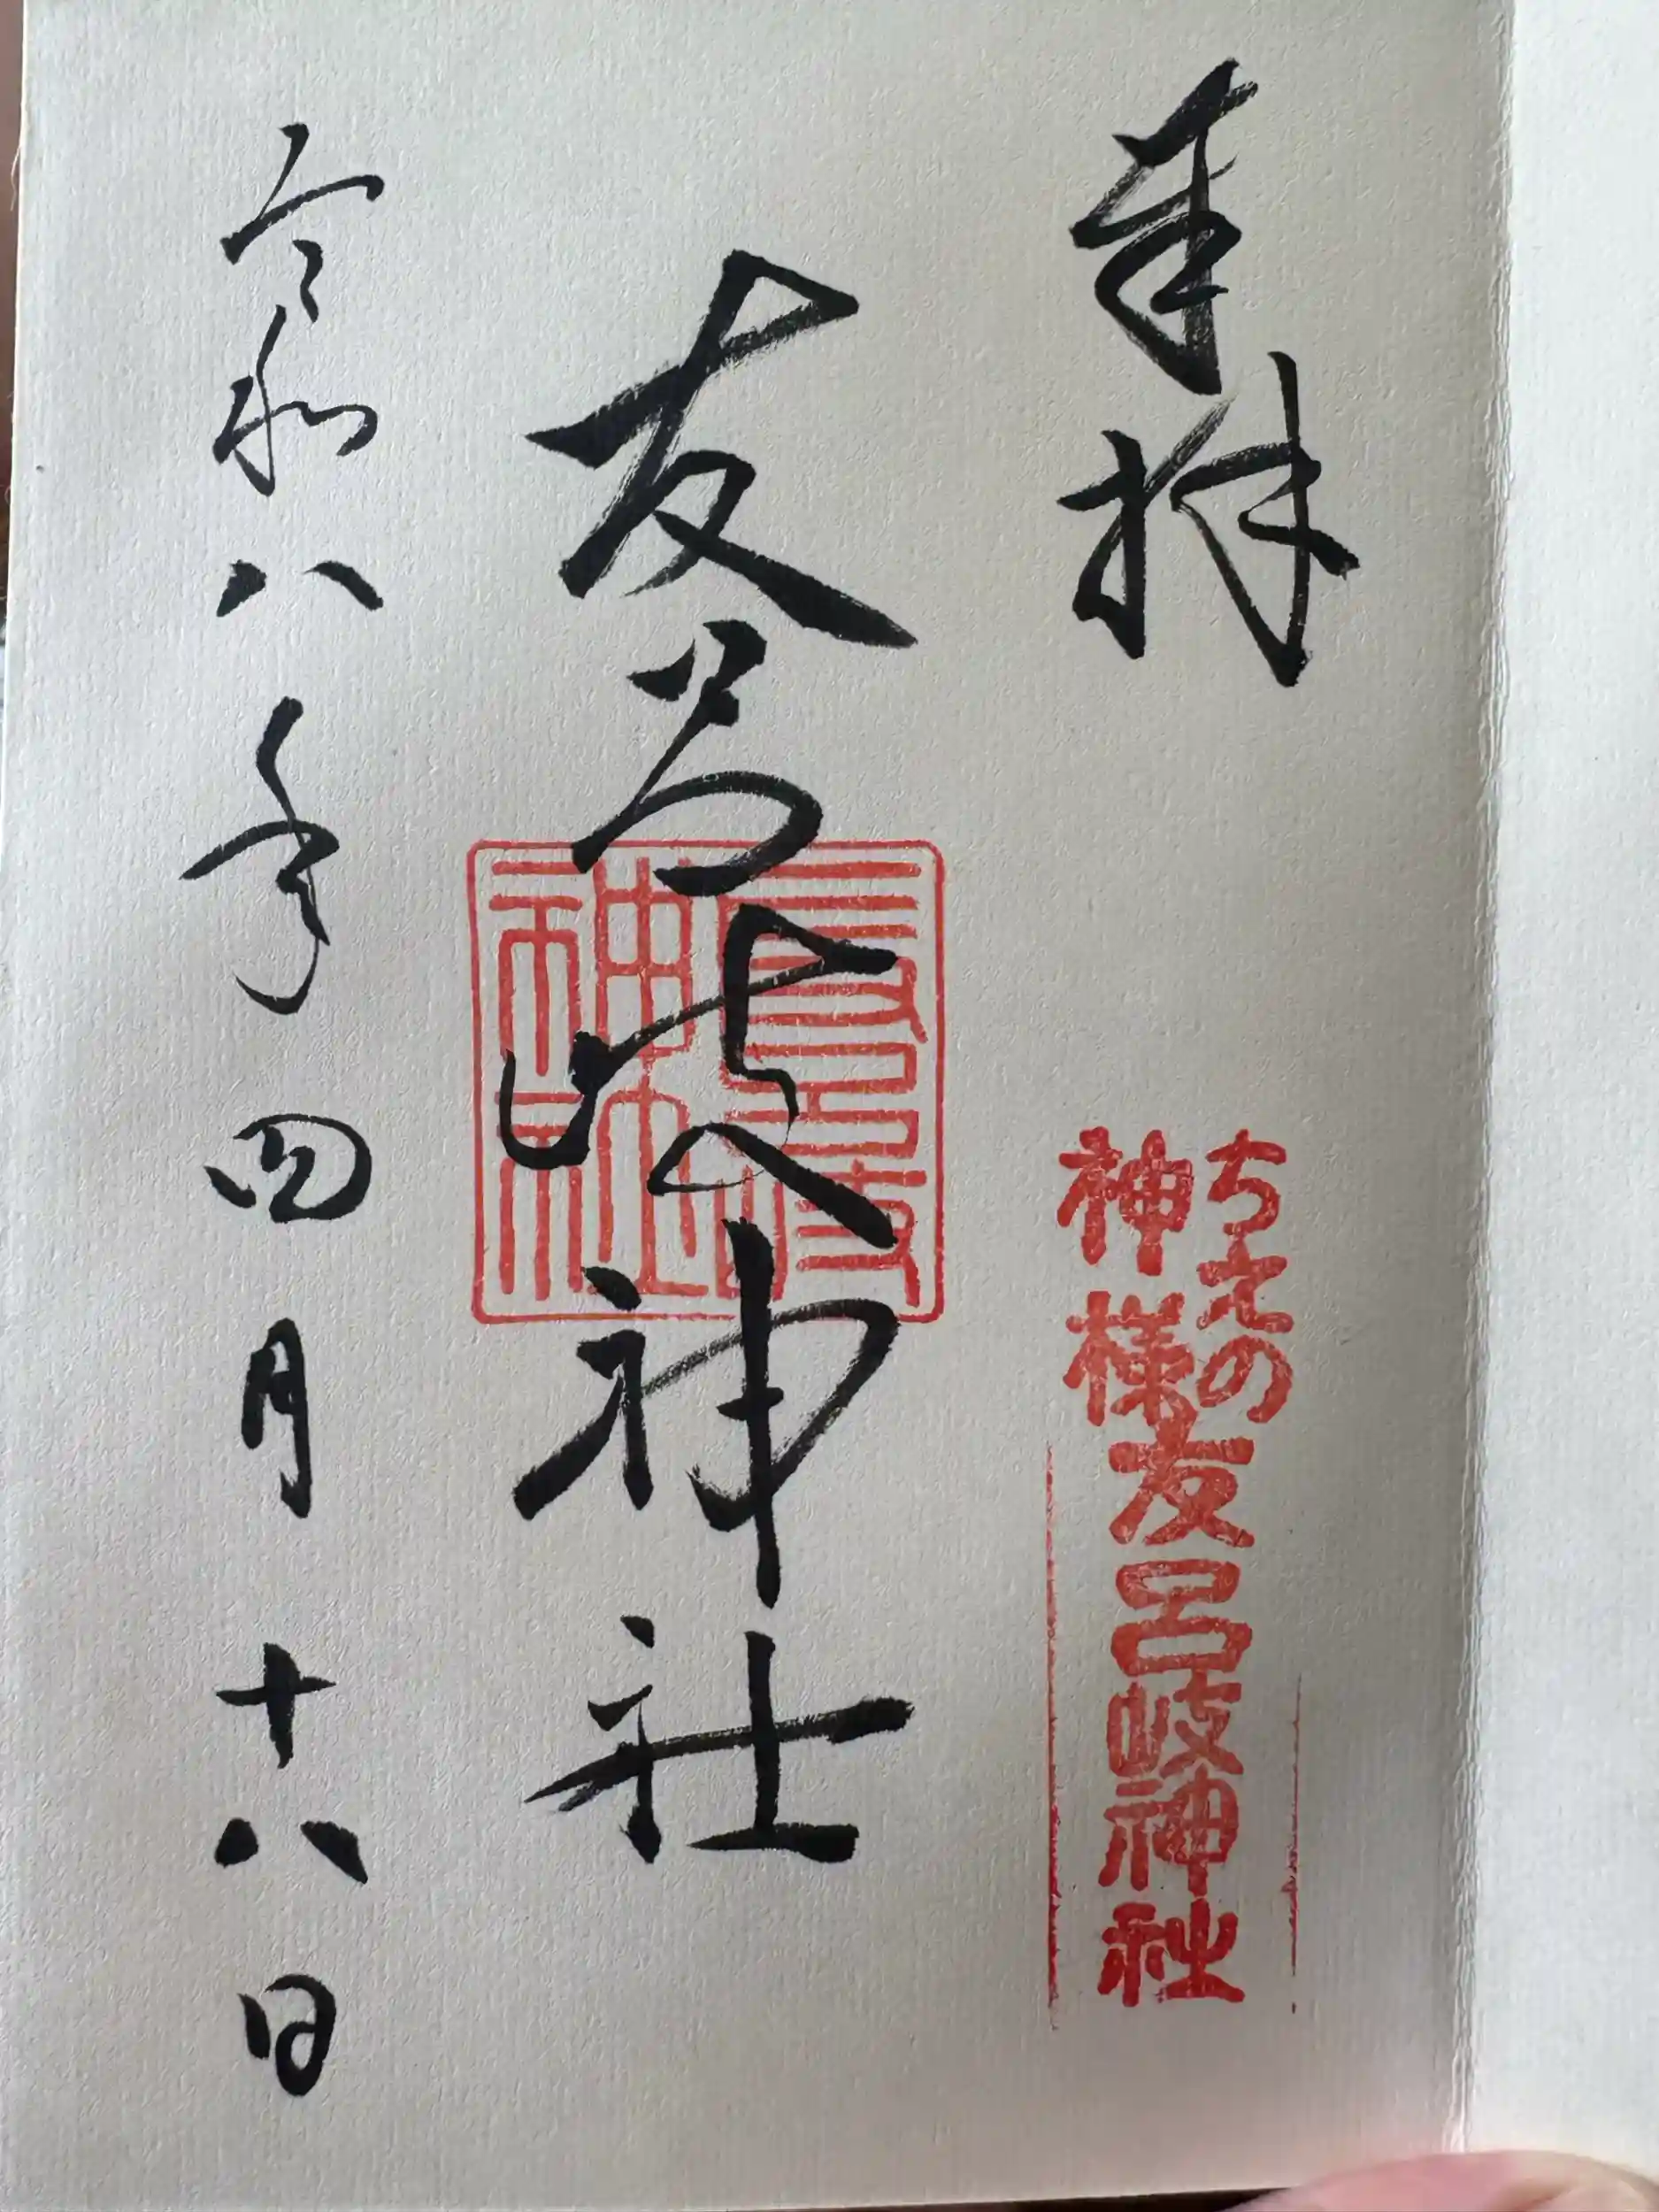 奉拝
ちえの
神様
友呂岐神社
友呂岐神社
友呂岐
神社
令和八年四月十八日